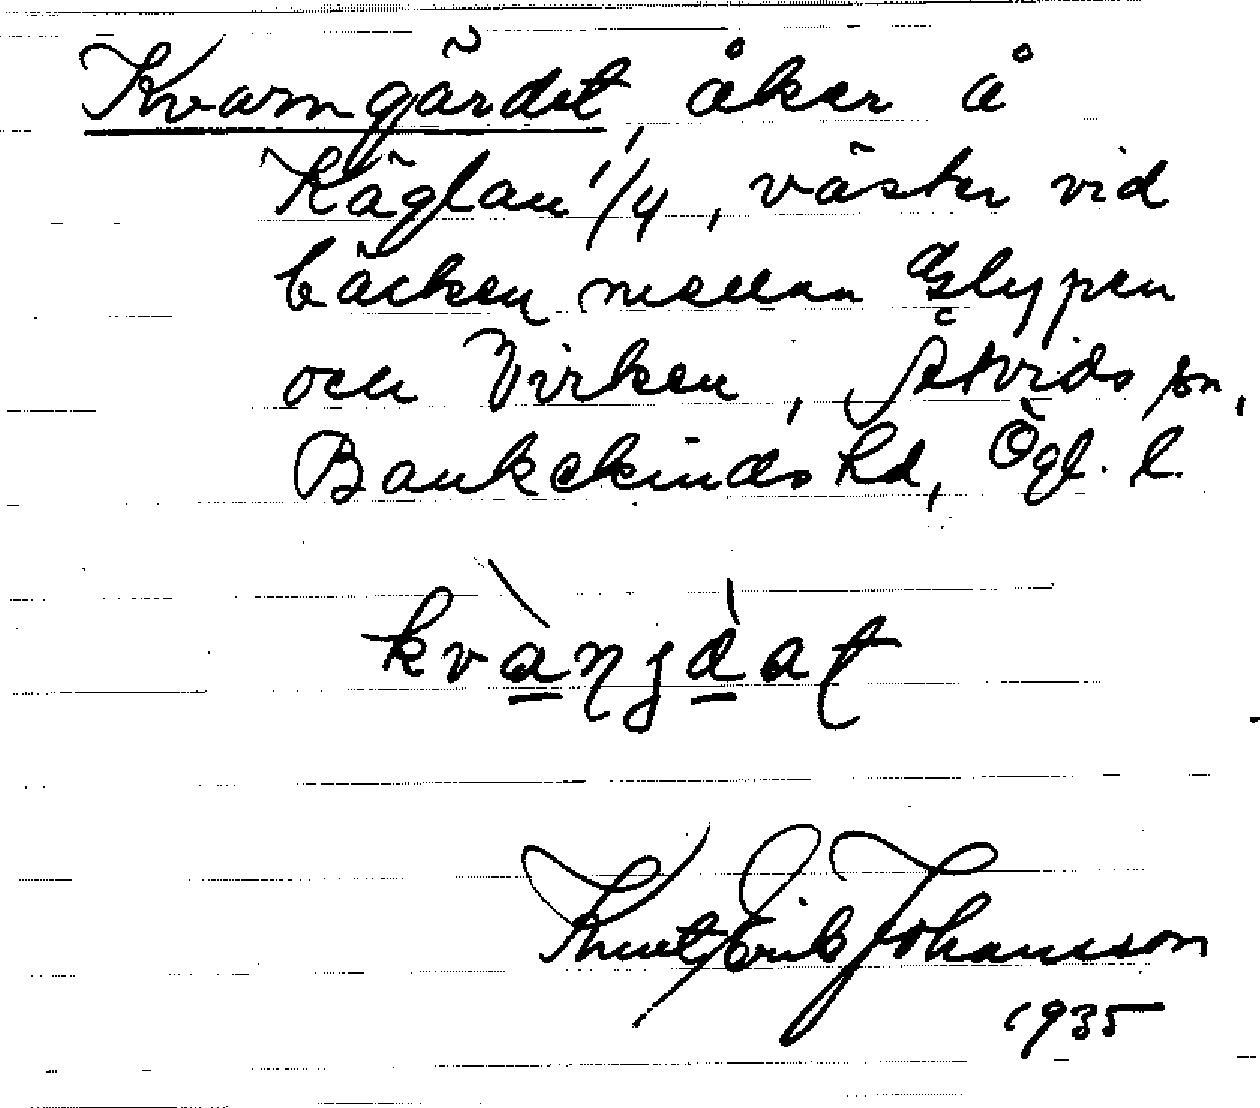 Kvarngärdet, åker å
Käglan 1/4, väster vid
bäcken mellan Glypen
och Virken, Åtvids sn,
Bankekinds hd, Ögl. l.
kvàŋgàat
Knut Erik Johansson
1935